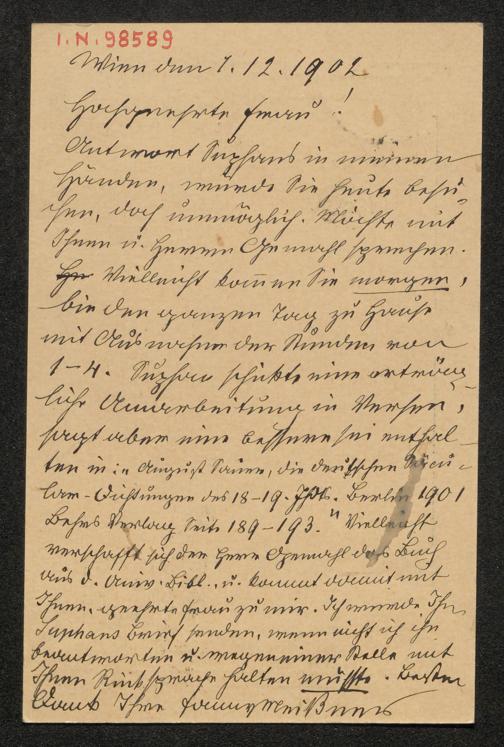 I.N. 98589
Wien den 1.12.1902
Hochgeehrte Frau!
Antwort Suphans in meinen
Händen, würde Sie heute besu-
chen, doch unmöglich. Möchte mit
Ihnen u. Herrn Gemahl sprechen.
Vielleicht kom̄en Sie morgen,
bin den ganzen Tag zu Hause
mit Ausnahme der Stunden von
1–4. Suphan schickte eine erträg-
liche Umarbeitung in Versen,
sagt aber eine bessere sei enthal-
ten in: „August Sauer, die deutschen Säcu-
lar-Dichtungen des 18–19. Jhdt. Berlin 1901
Behrs Verlag Seite 189–193." Vielleicht
verschafft sich der Herr Gemahl das Buch
aus d. Univ. Bibl. u. kommt damit mit
Ihnen, geehrte Frau zu mir. Ich würde Ihn
Suphans Brief senden, wenn nicht ich ihn
beantworten u. wegen einer Stelle mit
Ihnen Rücksprache halten müsste. Besten
Dank Ihre Fanny Meißner